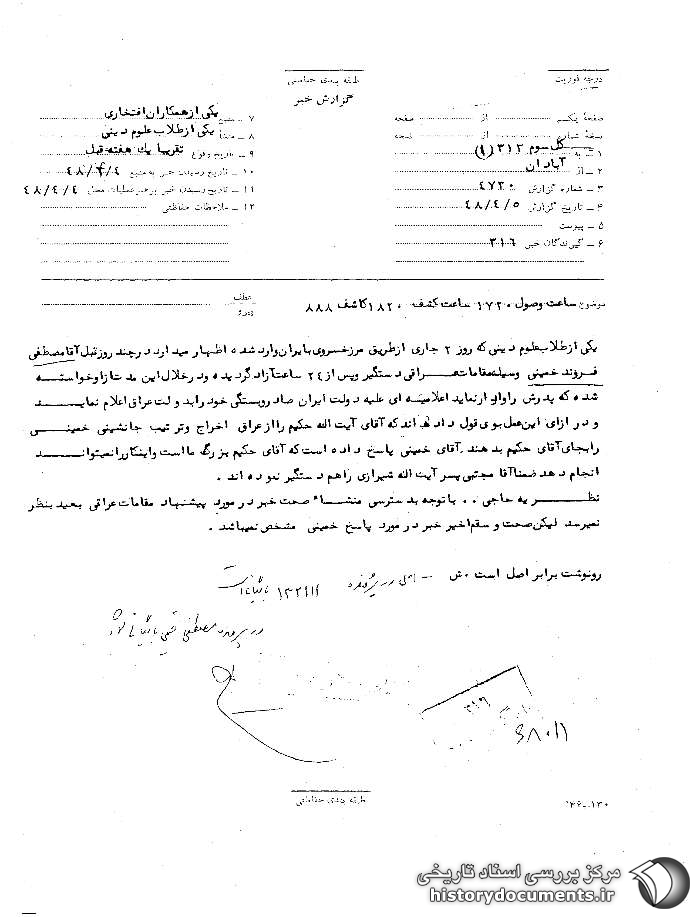 درجه فوریت
طبقه بندی حفاظتی
گزارش خبر
صفحه یکم از صفحه
صفحه شماره از صفحه
۱ – به کل سوم ۳۱۲ (۱)
۲ – از آبادان
۳ – شماره گزارش ۴۷۲۰
۴ – تاریخ گزارش ۴۸/۴/۵
۵ – پیوست
۶ – گیرندگان خبر ۳۱۶
۷ – منبع یکی از همکاران افتخاری
۸ – منشأ یکی از طلاب علوم دینی
۹ – تاریخ وقوع تقریبا یك هفته قبل
۱۰ – تاریخ رسیدن خبر به منبع ۴۸/۴/۴
۱۱ – تاریخ رسیدن خبر برهبر عملیات محل ۴۸/۴/۴
۱۲ – ملاحظات حفاظتی
موضوع ساعت وصول ۱۷۲۰ ساعت کشف ۱۸۲۰ کاشف ۸۸۸
عطف
پیرو
یکی از طلاب علوم دینی که روز ۲ جاری از طریق مرز خسروی بایران وارد شده اظهار میدارد در چند روز قبل آقا مصطفی
فرزند خمینی وسیله مقامات عراقی دستگیر و پس از ۲۴ ساعت آزاد گردیده و در خلال این مدت از او خواسته
شده که پدرش را وادار نماید اعلامیه ای علیه دولت ایران صادر و بستگی خود را بدولت عراق اعلام نماید
و در ازای این عمل بوی قول داده اند که آقای آیت اله حکیم را از عراق اخراج و ترتیب جانشینی خمینی
را بجای آقای حکیم بدهند . آقای خمینی پاسخ داده است که آقای حکیم بزرگ ما است و اینکار را نمیتواند
انجام دهد ضمنا آقا مجتبی پسر آیت اله شیرازی را هم دستگیر نموده اند .
نظریه حاجی . . با توجه بدسترسی منشاء صحت خبر در مورد پیشنهاد مقامات عراقی بعید بنظر
نمیرسد لیکن صحت و سقم اخیر خبر در مورد پاسخ خمینی مشخص نمیباشد .
رونوشت برابر اصل است . ش
اصل در پرونده
در پرونده مصطفی
۳۱۶
۴۸۰۱۱
طبقه بندی حفاظتی
مرکز بررسی اسناد تاریخی
historydocuments.ir